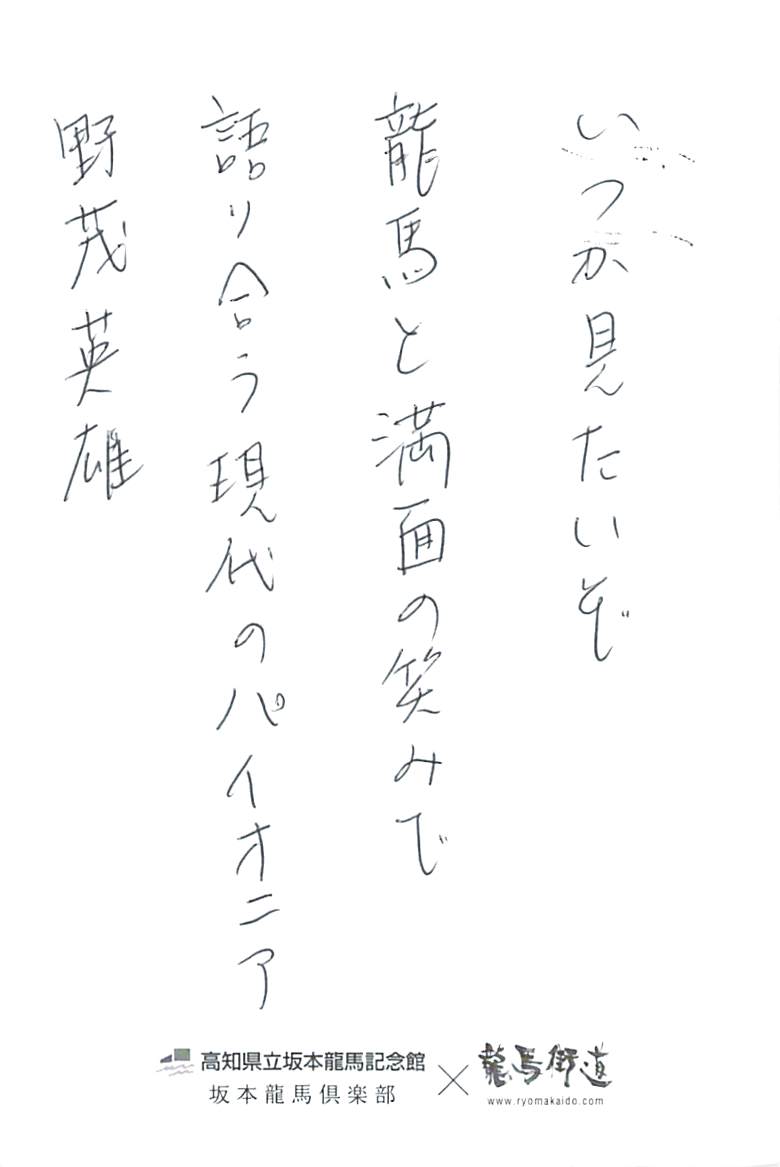 いつか見たいぞ
龍馬と満面の笑みで
語り合う現代のパイオニア
野茂英雄
高知県立坂本龍馬記念館
坂本龍馬倶楽部
×
龍馬街道
www.ryomakaido.com